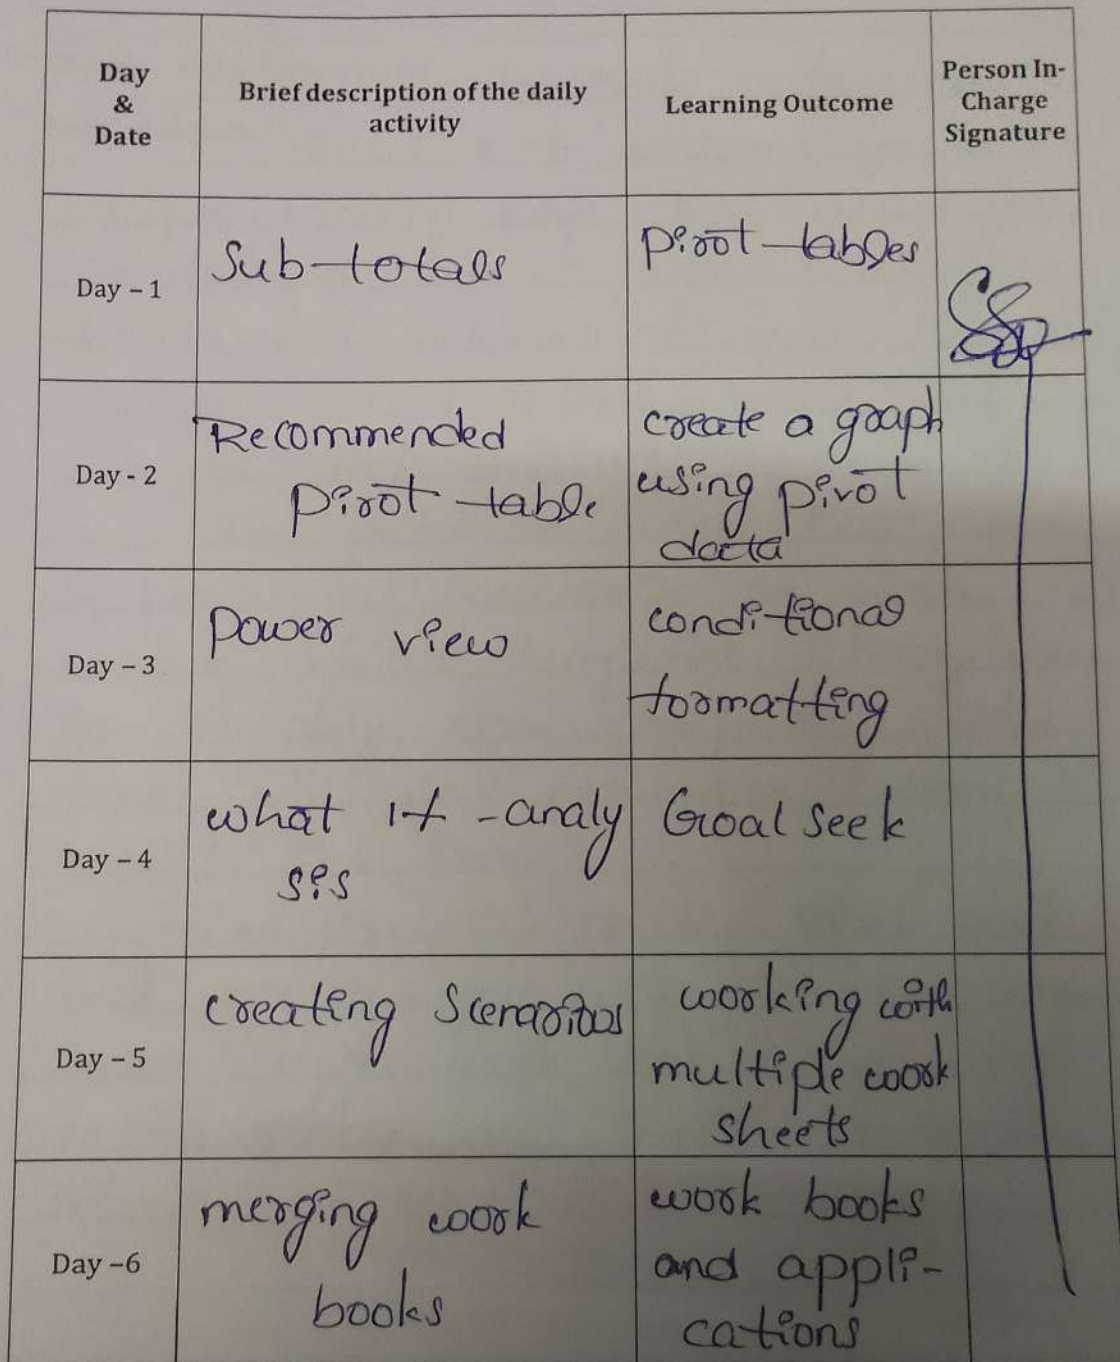 Day
&
Date
Brief description of the daily
activity
Learning Outcome
Person In-
Charge
Signature
Day – 1
Sub-totals
pivot tables
Day - 2
Recommended
pivot table
create a graph
using pivot
data
Day – 3
power view
conditional
formatting
Day – 4
what if -analy
sis
Goal seek
Day – 5
creating Scenarios
working with
multiple work
sheets
Day –6
merging work
books
work books
and appli-
cations